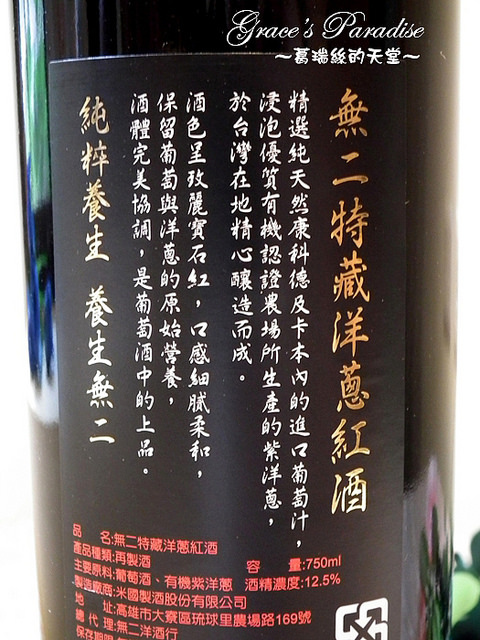 Grace's Paradise
～葛瑞絲的天堂～
無二特藏洋蔥紅酒
精選純天然康科德及卡本內的進口葡萄汁，
浸泡優質有機認證農場所生產的紫洋蔥，
於台灣在地精心釀造而成。
酒色呈玫麗寶石紅，口感細膩柔和，
保留葡萄與洋蔥的原始營養，
酒體完美協調，是葡萄酒中的上品。
純粹養生 養生無二
品 名:無二特藏洋蔥紅酒
產品種類:再製酒 容 量:750ml
主要原料:葡萄酒、有機紫洋蔥 酒精濃度:12.5%
製造廠商:米國製酒股份有限公司
地 址:高雄市大寮區琉球里農場路169號
總 代 理:無二洋酒行
保存期限